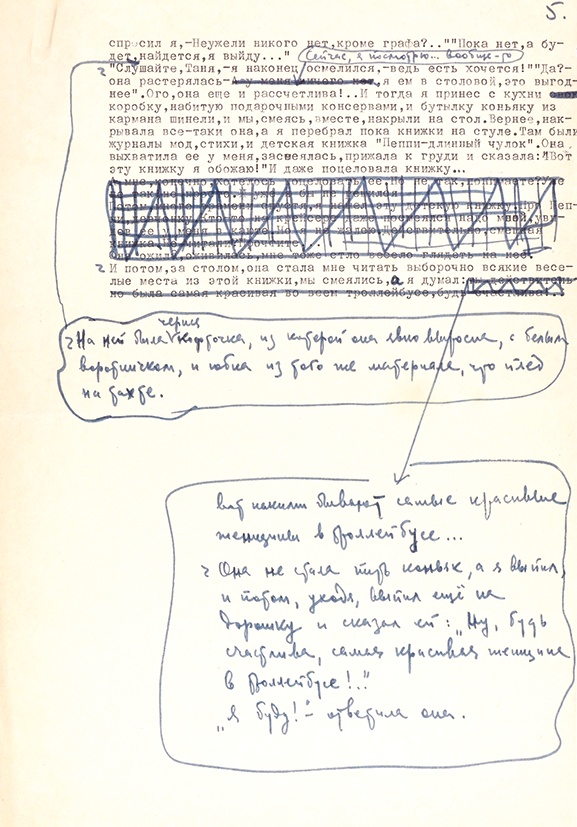 5.
спросил я,-Неужели никого нет,кроме графа?..""Пока нет,а бу-
дет,найдется,я выйду..." Сейчас, я посмотрю... вообще-то
"Слушайте,Таня,-я наконец осмелился,-ведь есть хочется!""Да?-
она растерялась-А у меня ничего нет,я ем в столовой,это выгод-
нее".Ого,она еще и рассчетлива!..И тогда я принес с кухни
коробку,набитую подарочными консервами,и бутылку коньяку из
кармана шинели,и мы,смеясь,вместе,накрыли на стол.Вернее,нак-
рывала все-таки она,а я перебрал пока книжки на стуле.Там были
журналы мод,стихи,и детская книжка "Пеппи-длинный чулок".Она
выхватила ее у меня,засмеялась,прижала к груди и сказала:"Вот
эту книжку я обожаю!"И даже поцеловала книжку...
И потом,за столом,она стала мне читать выборочно всякие весе-
лые места из этой книжки,мы смеялись,а я думал:
но была самая красивая во всем троллейбусе,будь счастлива!
На ней была черная кофточка, из которой она явно выросла, с белым
воротничком, и юбка из того же материала, что и плед
на тахте.
вот какими бывают самые красивые
женщины в троллейбусе...
Она не стала пить коньяк, а я выпил,
и потом, уходя, выпил ещё на
дорожку и сказал ей: „Ну, будь
счастлива, самая красивая женщина
в троллейбусе!.."
„Я буду!" - ответила она.